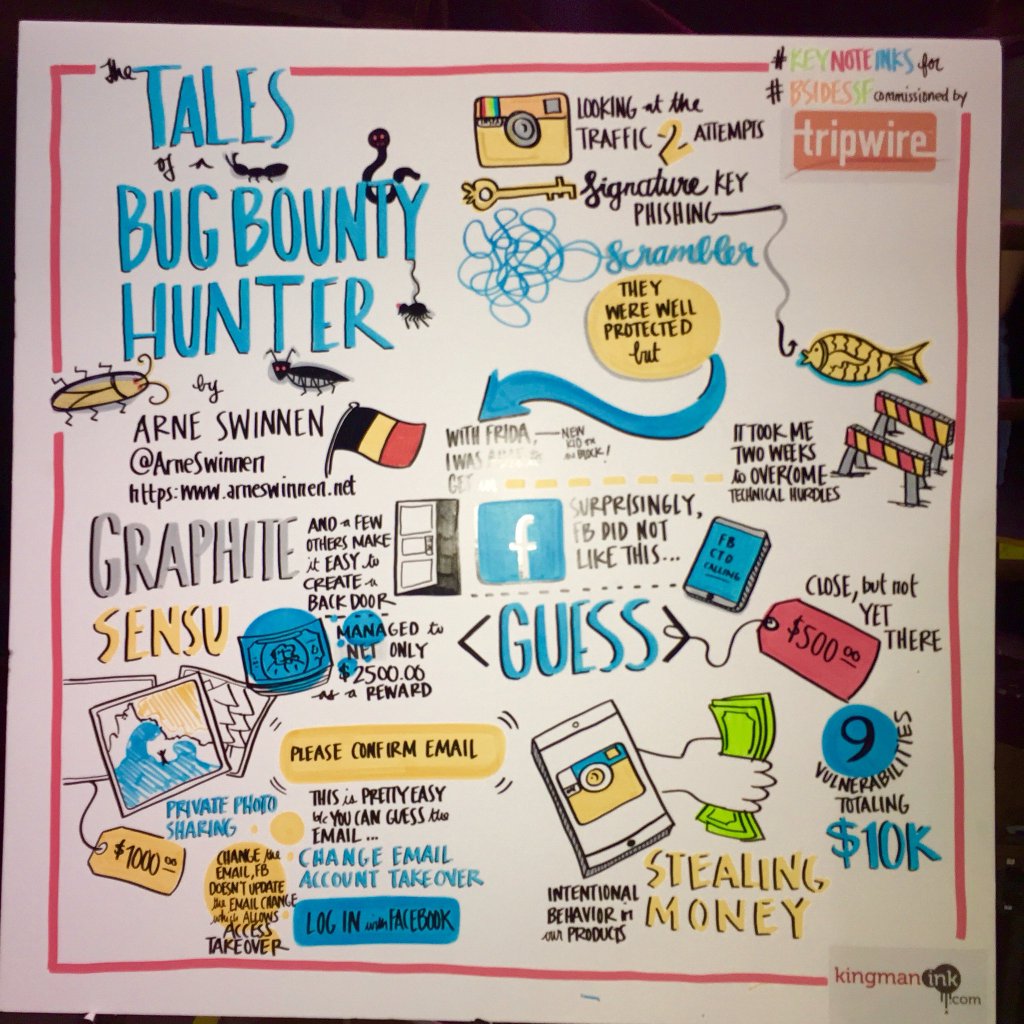 the TALES
of a
BUG BOUNTY
HUNTER
by
ARNE SWINNEN
@ArneSwinnen
https:www.arneswinnen.net
#KEYNOTEINKS for
#BSIDESSF commissioned by
tripwire
INSTA
LOOKING at the
TRAFFIC 2 ATTEMPTS
Signature KEY
PHISHING
Scrambler
THEY
WERE WELL
PROTECTED
but
WITH FRIDA,
I WAS
GET
NEW
KID on
the BLOCK!
IT TOOK ME
TWO WEEKS
to OVERCOME
TECHNICAL HURDLES
GRAPHITE
SENSU
AND a FEW
OTHERS MAKE
it EASY to
CREATE a
BACK DOOR
f
SURPRISINGLY,
FB DID NOT
LIKE THIS...
FB
CTO
CALLING
MANAGED to
NET ONLY
$2500.00
as a REWARD
<GUESS>
$500.00
CLOSE, but not
YET
THERE
PRIVATE PHOTO
SHARING
$1000.00
PLEASE CONFIRM EMAIL
THIS is PRETTY EASY
b/c YOU CAN GUESS the
EMAIL...
CHANGE EMAIL
ACCOUNT TAKEOVER
CHANGE the
EMAIL, FB
DOESN'T UPDATE
the EMAIL CHANGE
which ALLOWS
ACCESS
TAKEOVER
LOG IN with FACEBOOK
INTENTIONAL
BEHAVIOR in
our PRODUCTS
STEALING
MONEY
9
VULNERABILITIES
TOTALING
$10K
kingmanink
.com